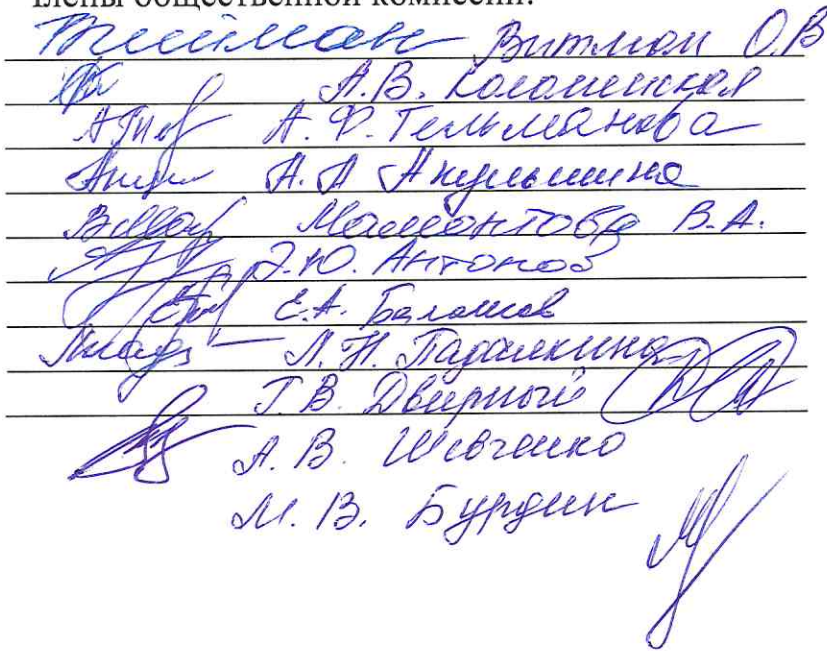 члены общественной комиссии:
Витман Витман О.В
А.В. Коломенская
А.Ф. Тельманова
А.А Акульшина
Мамонтова В.А.
Э.Ю. Антонов
Е.А. Балашов
Л.Н. Падалкина
Г.В. Дверный
А.В. Шевченко
М.В. Бурдин